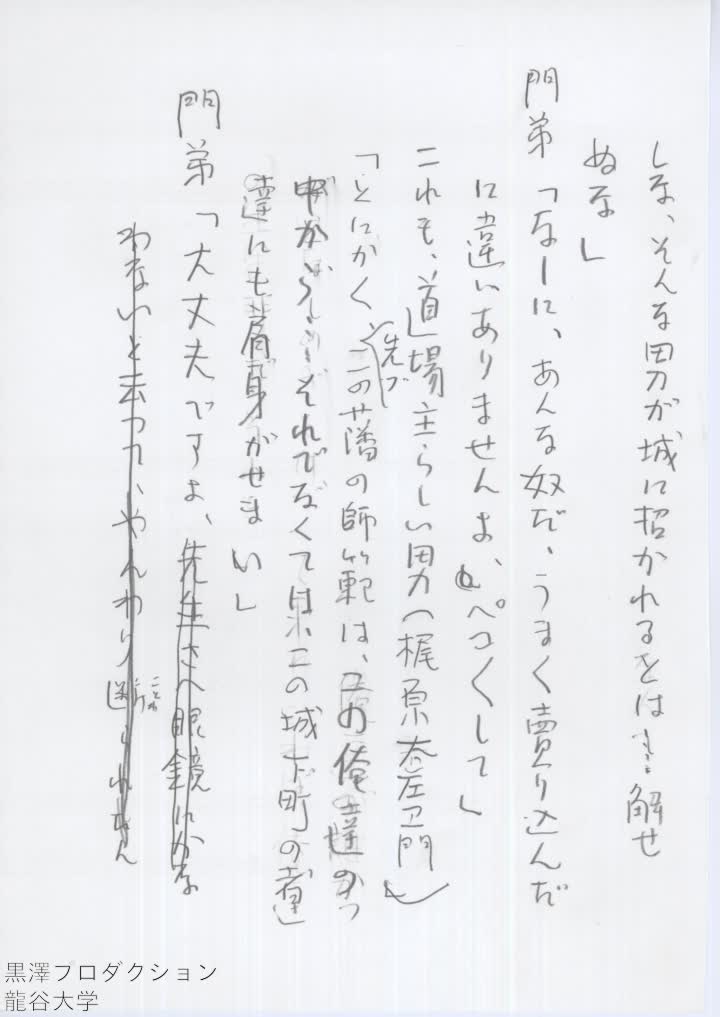 しな、そんな男が城に招かれるとは……解せ
ぬな」
門弟「なーに、あんな奴だ、うまく賣り込んだ
に違いありませんよ、ぺこくして」
これも、道場主らしい男（梶原 左ヱ門）
「とにかく先づこの藩の師範は、この俺達のつ
中から……それでなくては、この城下町の道
達にも肩身がせまい」
門弟「大丈夫ですよ、先生さへ眼鏡にかな
わないと云って、やんわり断ことわられちゃ
黒澤プロダクション
龍谷大学